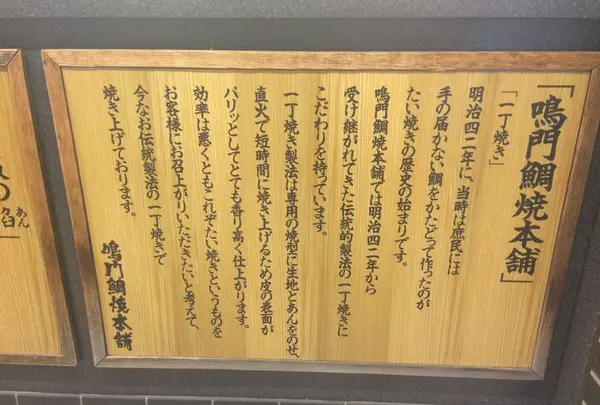 「鳴門鯛焼本舗」
「一丁焼き」
明治四二年に、当時は庶民には
手の届かない鯛をかたどって作ったのが
たい焼きの歴史の始まりです。
鳴門鯛焼本舗では明治四二年から
受け継がれてきた伝統的製法の一丁焼きに
こだわりを持っています。
一丁焼き製法は専用の焼型に生地とあんをのせ、
直火で短時間に焼き上げるため皮の表面が
パリッとしてとても香り高く仕上がります。
効率は悪くともこれぞたい焼きというものを
お客様にお召上がりいただきたいと考えて、
今なお伝統製法の一丁焼きで
焼き上げております。
鳴門鯛焼本舗
の
あん